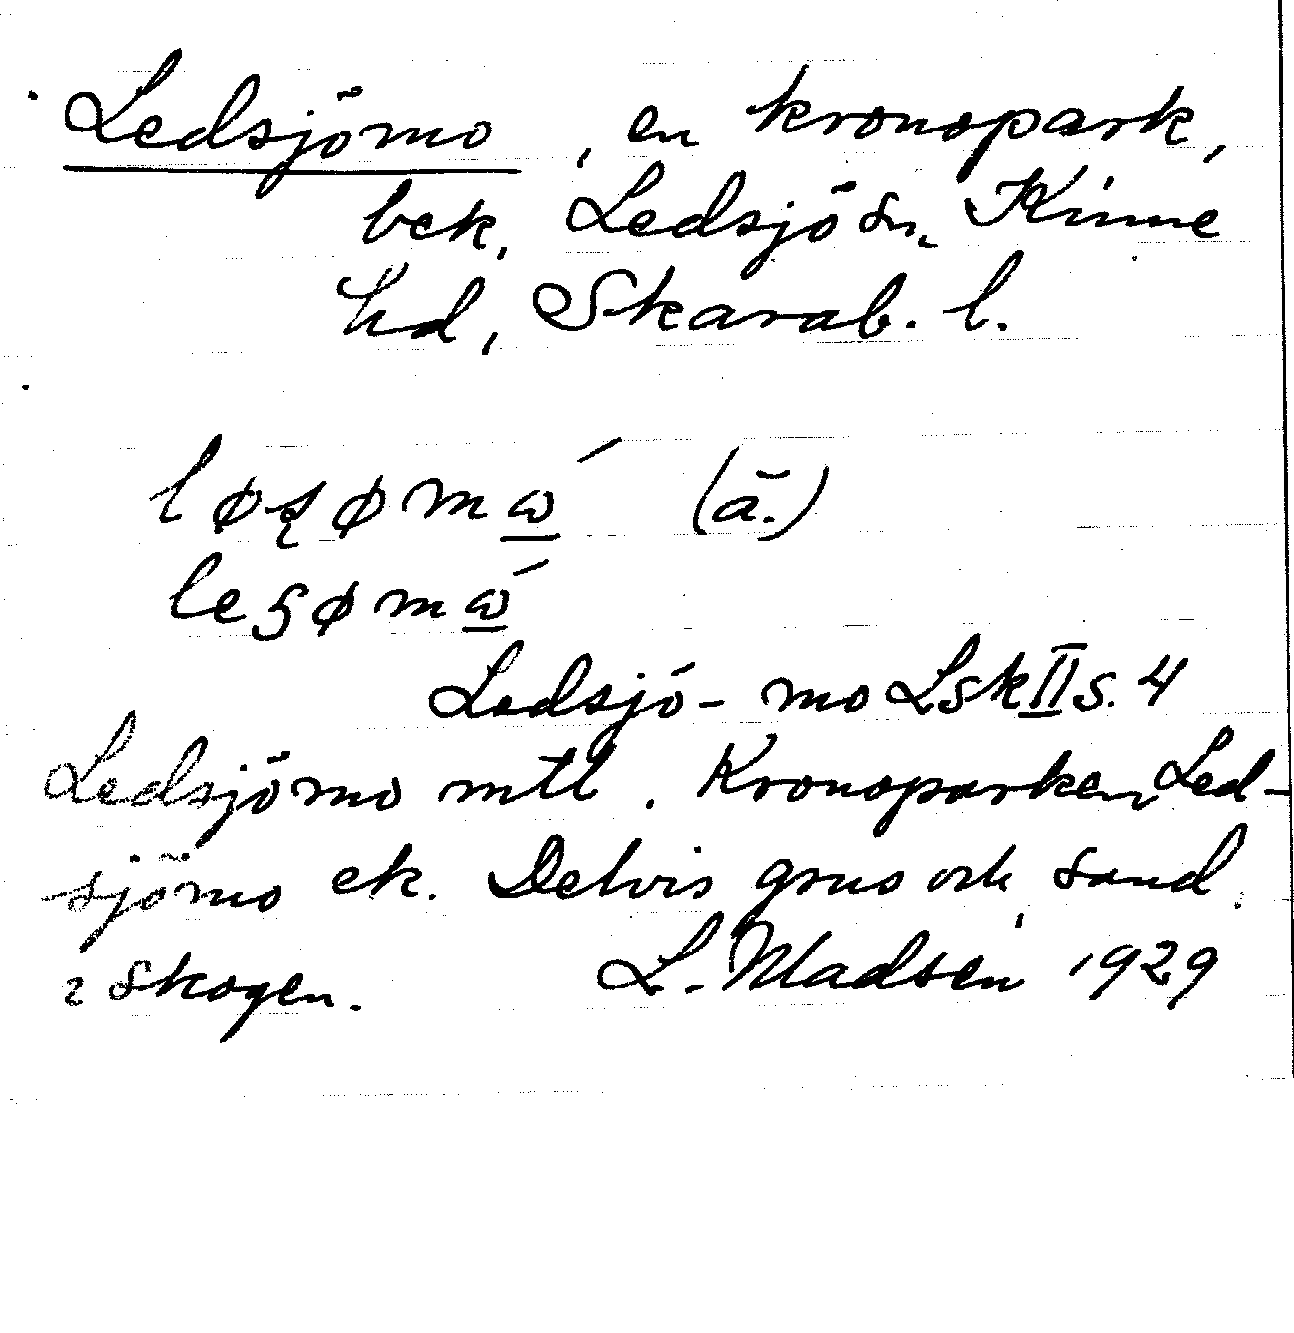 Ledsjömo, en kronopark,
bek, Ledsjö sn, Kinne
hd, Skarab. l.
(ä.)
Ledsjö-mo LskII s. 4
Ledsjömo mtl. Kronoparken Led-
sjömo ek. Delvis grus och sand
i skogen. L. Madsén 1929